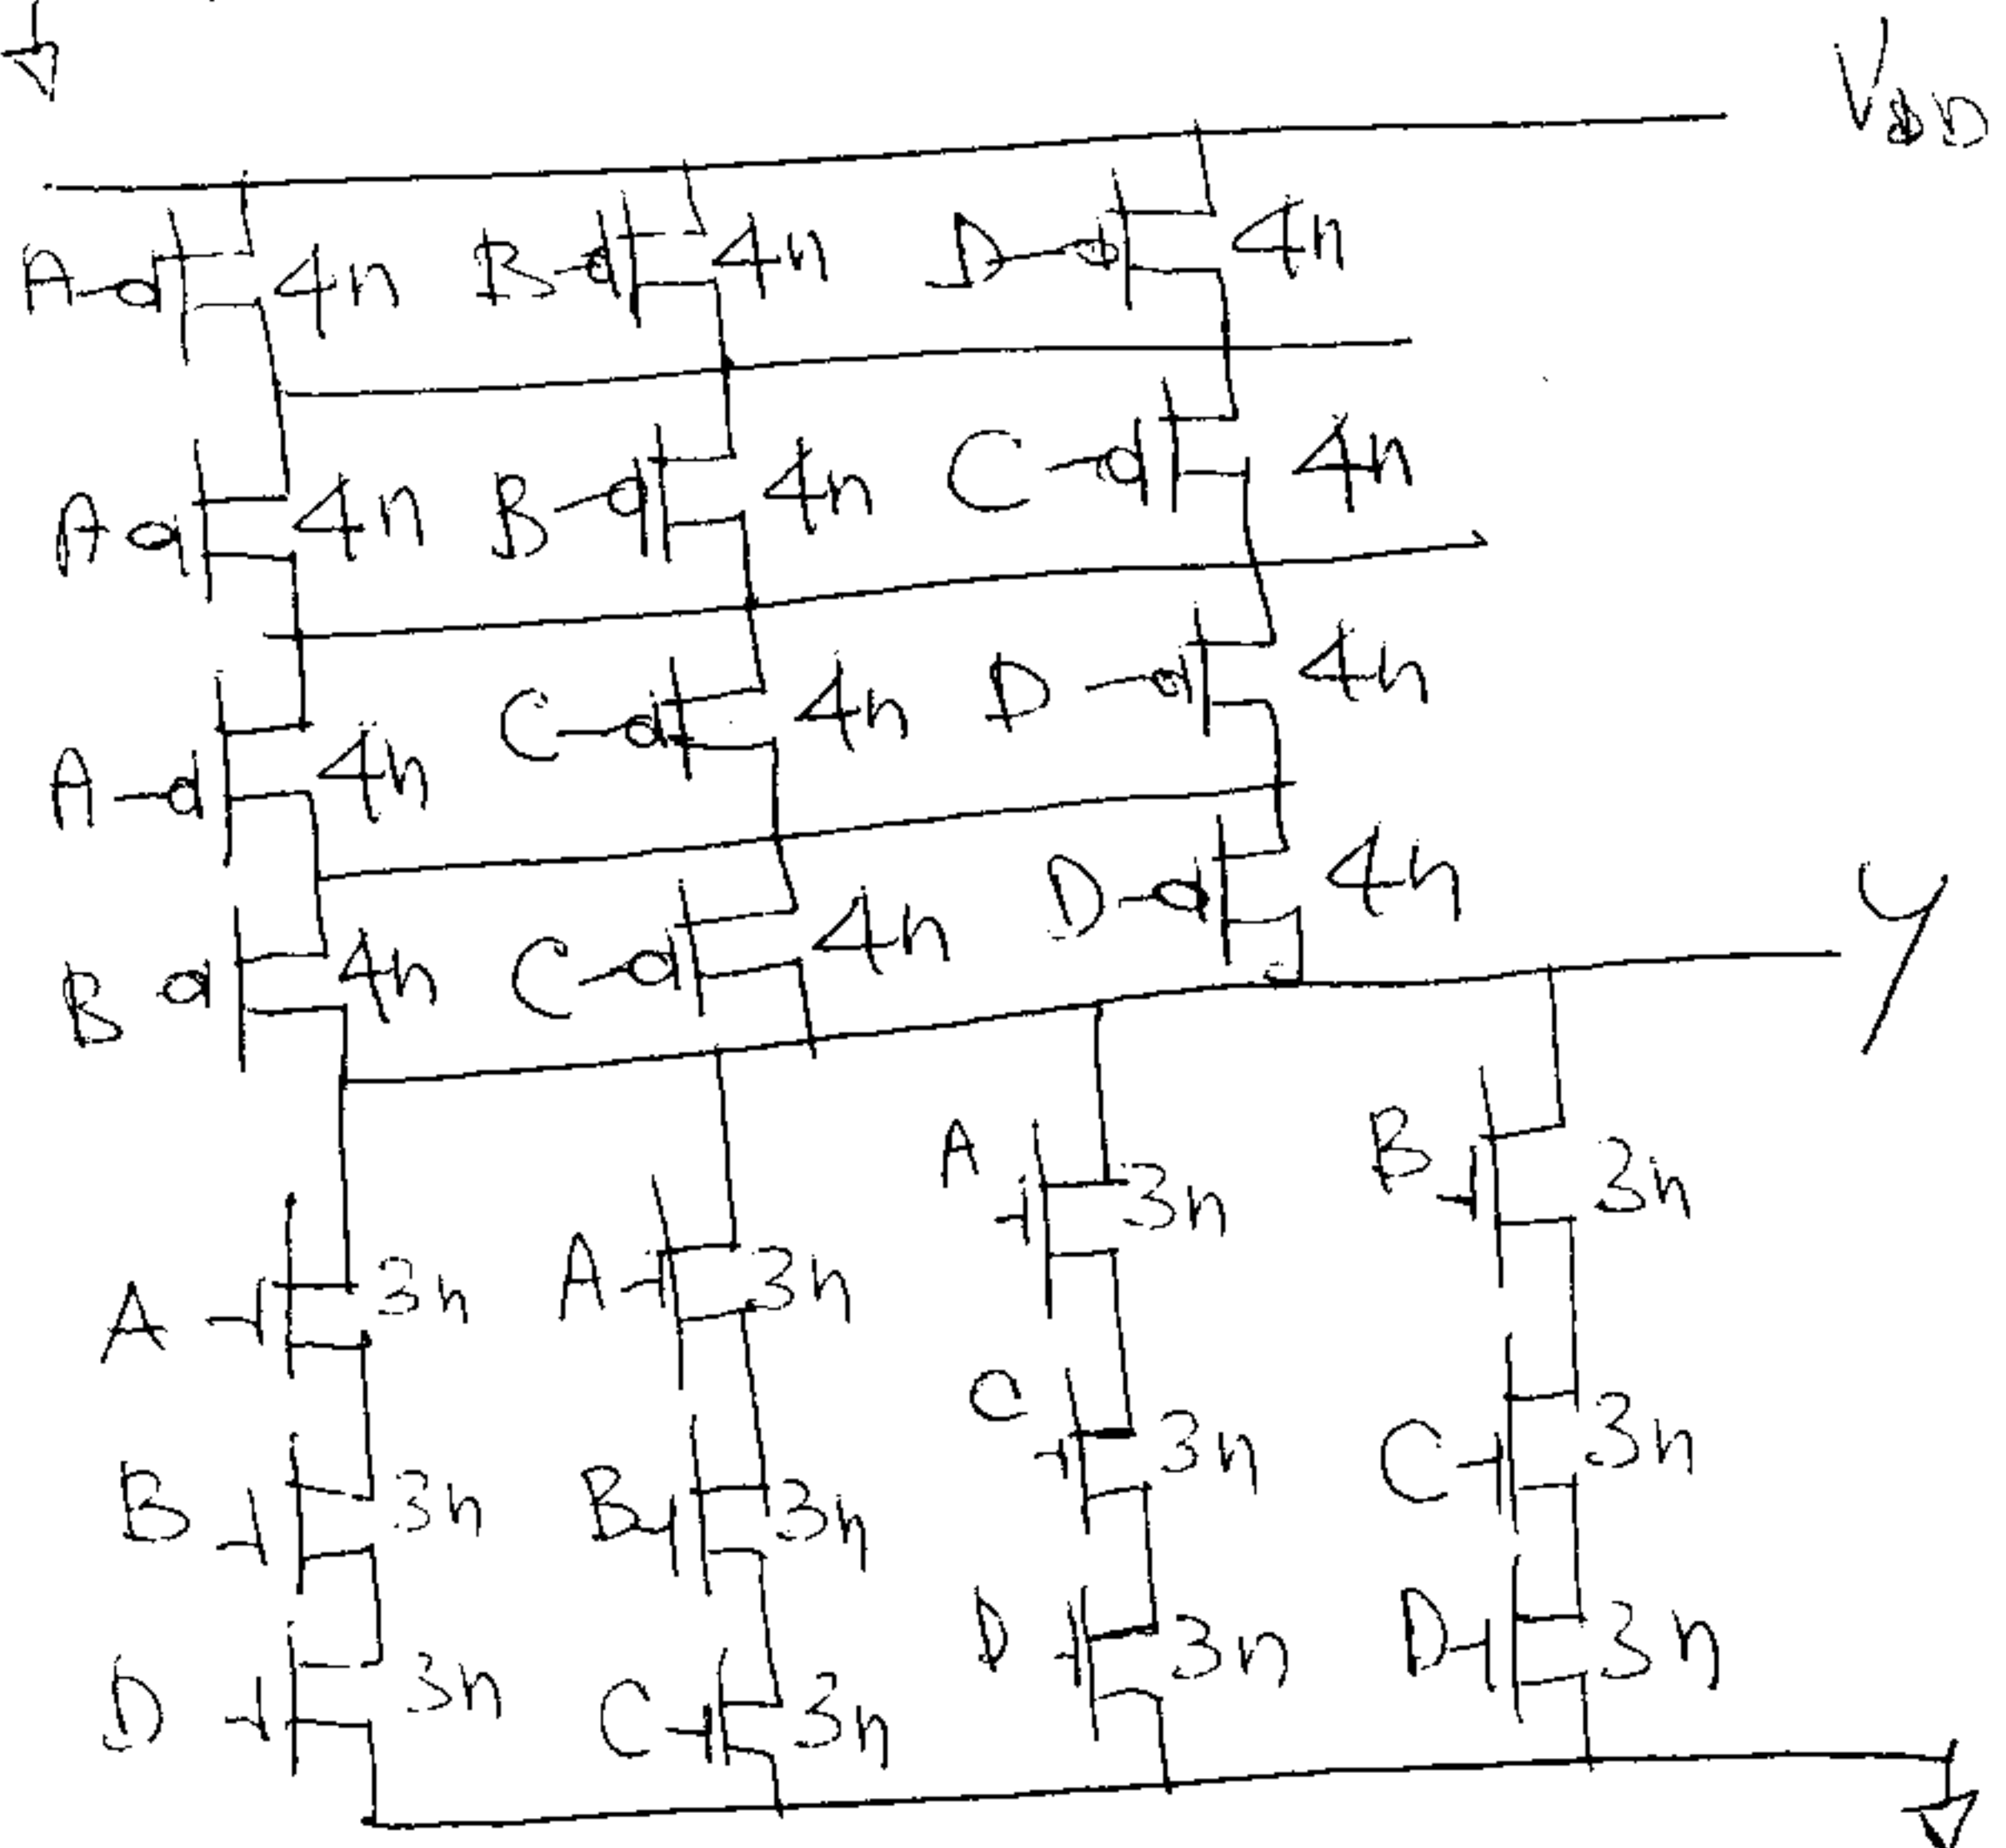 VDD
A 4n B 4n D 4n
A 4n B 4n C 4n
A 4n C 4n D 4n
B 4n C 4n D 4n
Y
A 3n A 3n A 3n B 3n
B 3n B 3n C 3n C 3n
D 3n C 3n D 3n D 3n